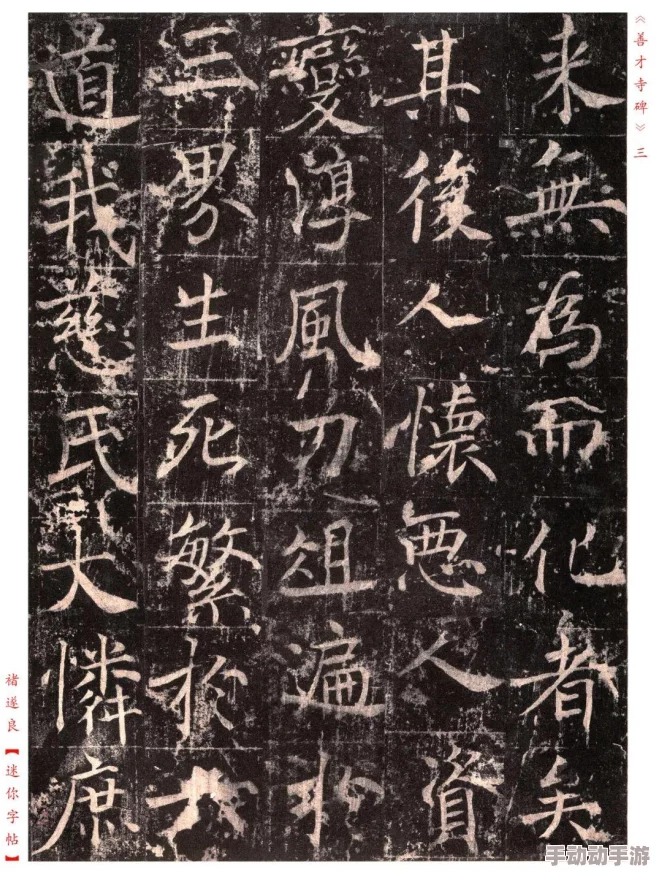 《善才寺碑》三
来無為而化者矣
其後人懷悪人資
變淳風刃俎遍於
三界生死繁於六
道我慈氏大憐庶
褚遂良【迷你字帖】
手动动手游